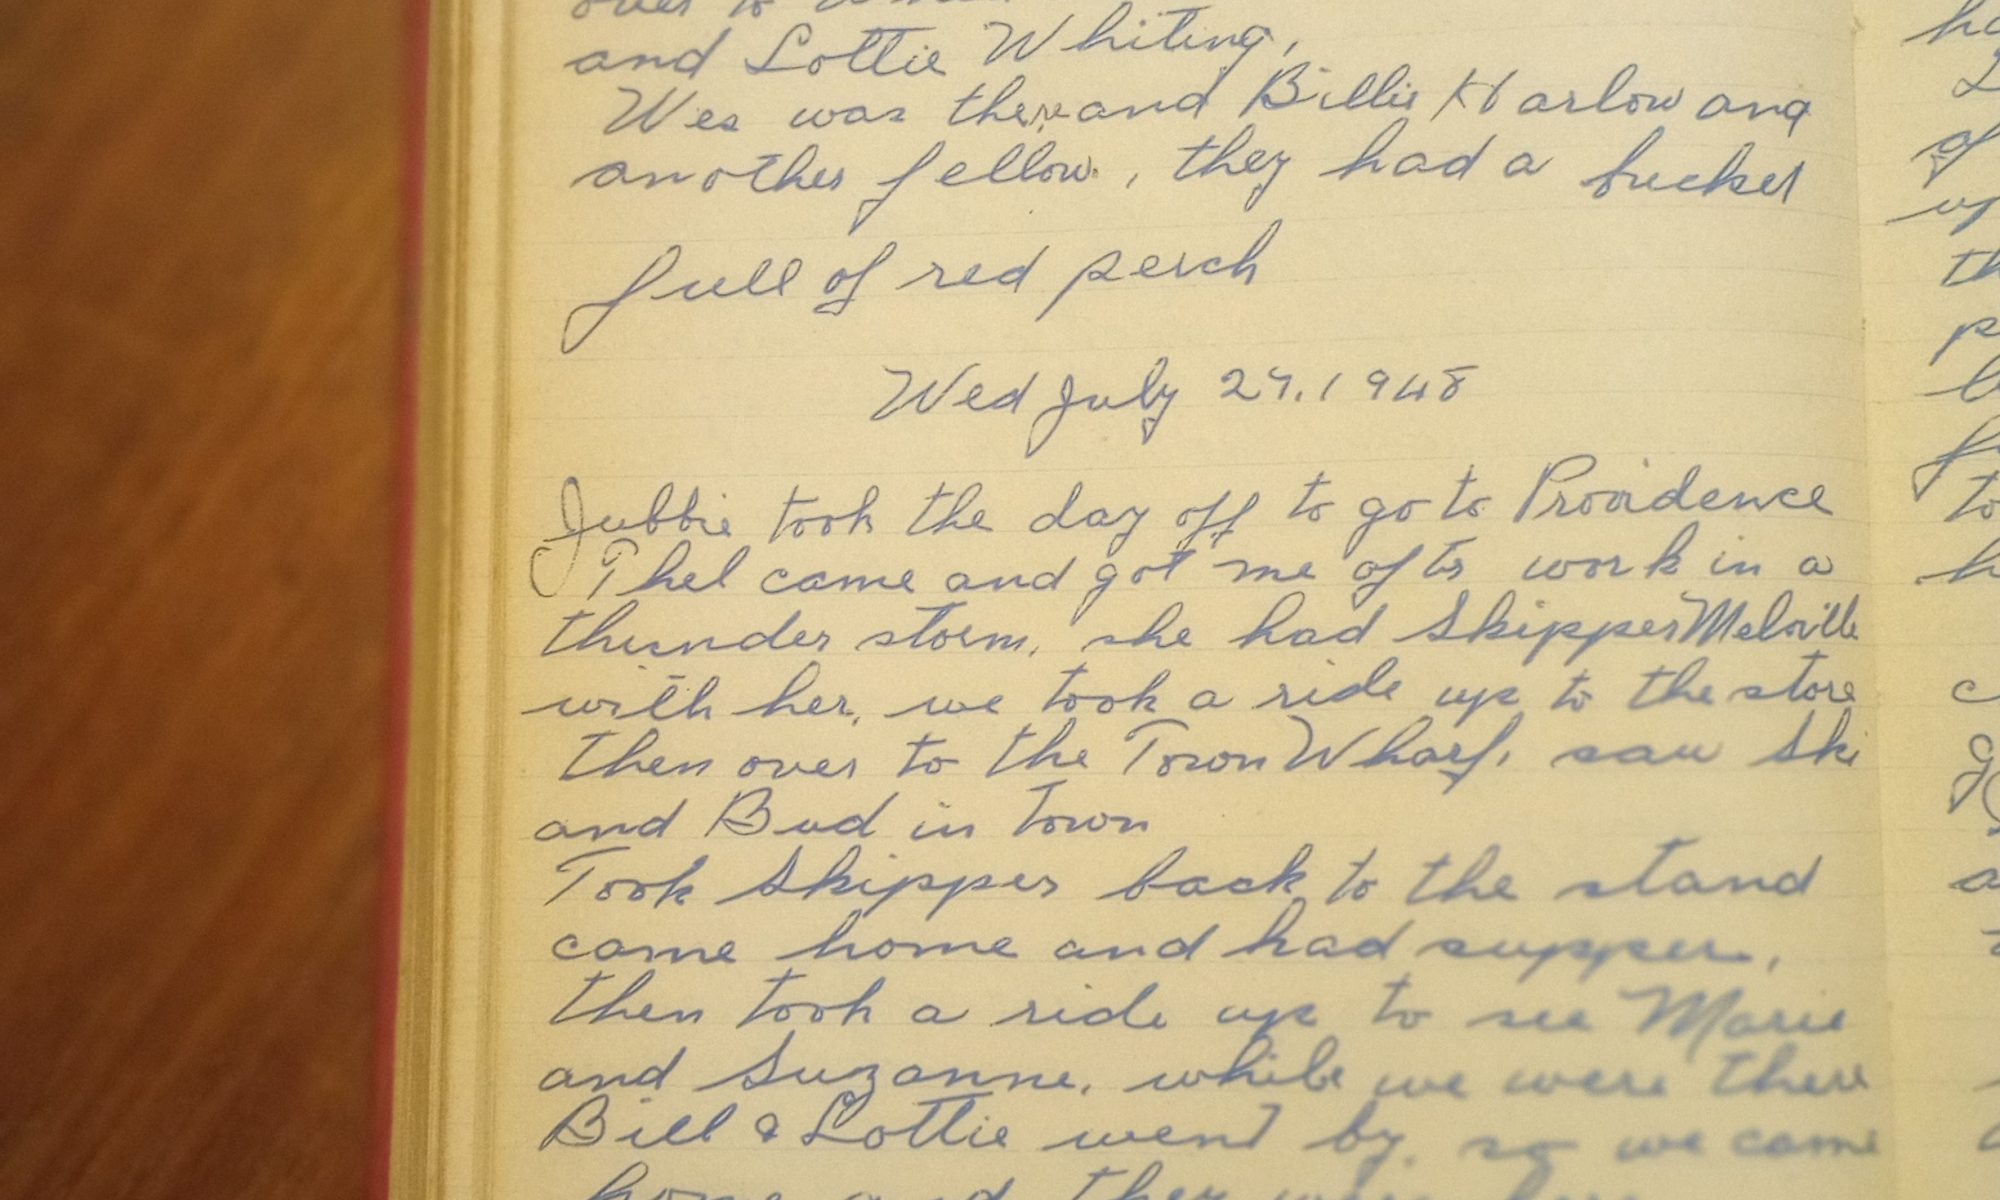 over to
and Lottie Whiting,
Wes was there and Billie Harlow and
another fellow, they had a bucket
full of red perch
Wed July 27. 1948
Jubbie took the day off to go to Providence
Thel came and got me after work in a
thunder storm, she had Skipper Melville
with her, we took a ride up to the store
then over to the Town Wharf, saw Ski
and Bud in town
Took Skipper back to the stand
came home and had supper,
then took a ride up to see Marie
and Suzanne, while we were there
Bill & Lottie went by, so we came
home and they were here